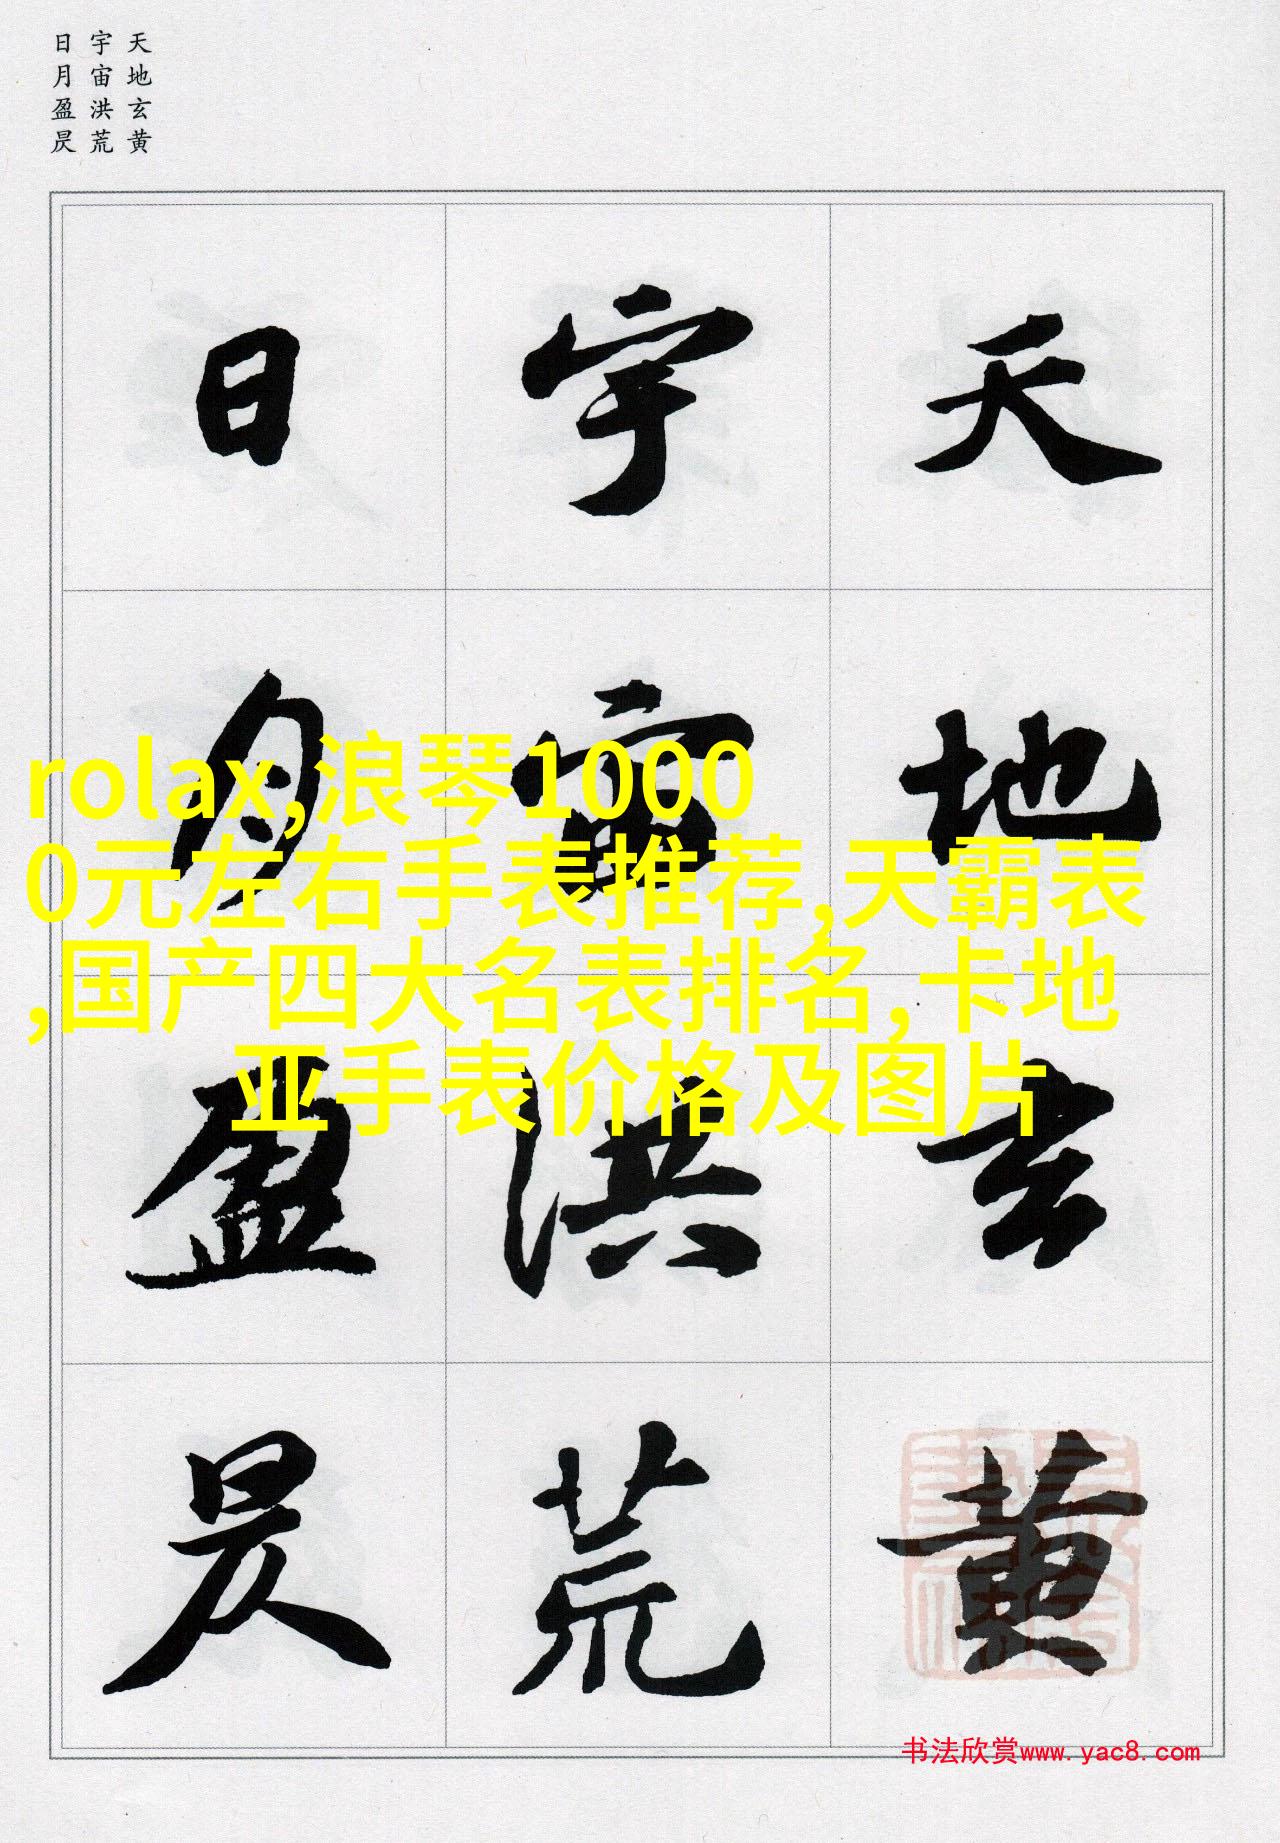 天地玄黄
宇宙洪荒
日月盈昃
天地玄黄
宇宙洪荒
日月盈昃
rolax,浪琴1000
0元左右手表推荐,天霸表
,国产四大名表排名,卡地
亚手表价格及图片
书法欣赏www.yac8.com